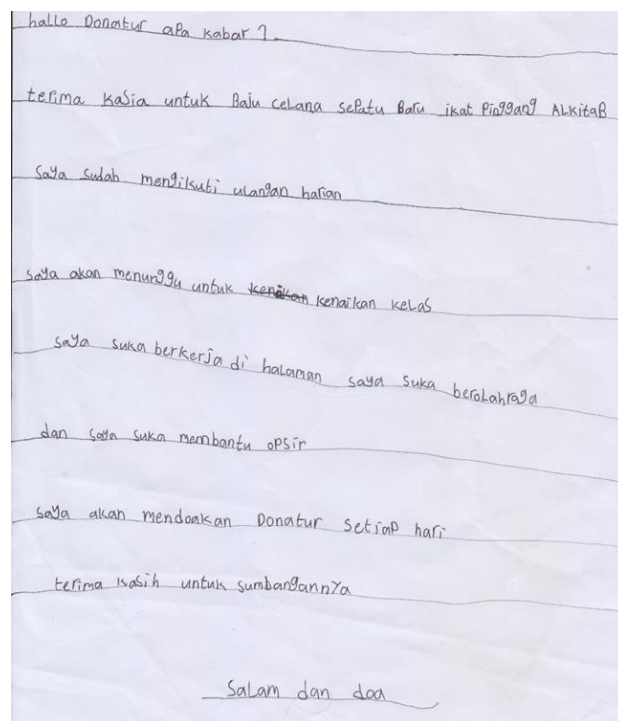 hallo Donatur apa kabar ?
terima kasia untuk Baju celana sepatu Baru ikat Pinggang ALKitaB
Saya sudah mengikuti ulangan harian
saya akan menunggu untuk kenaikan kelas
saya suka berkerja di halaman saya suka berolahraga
dan saya suka membantu opsir
saya akan mendoakan Donatur setiap hari
terima kasih untuk sumbangannya
Salam dan doa